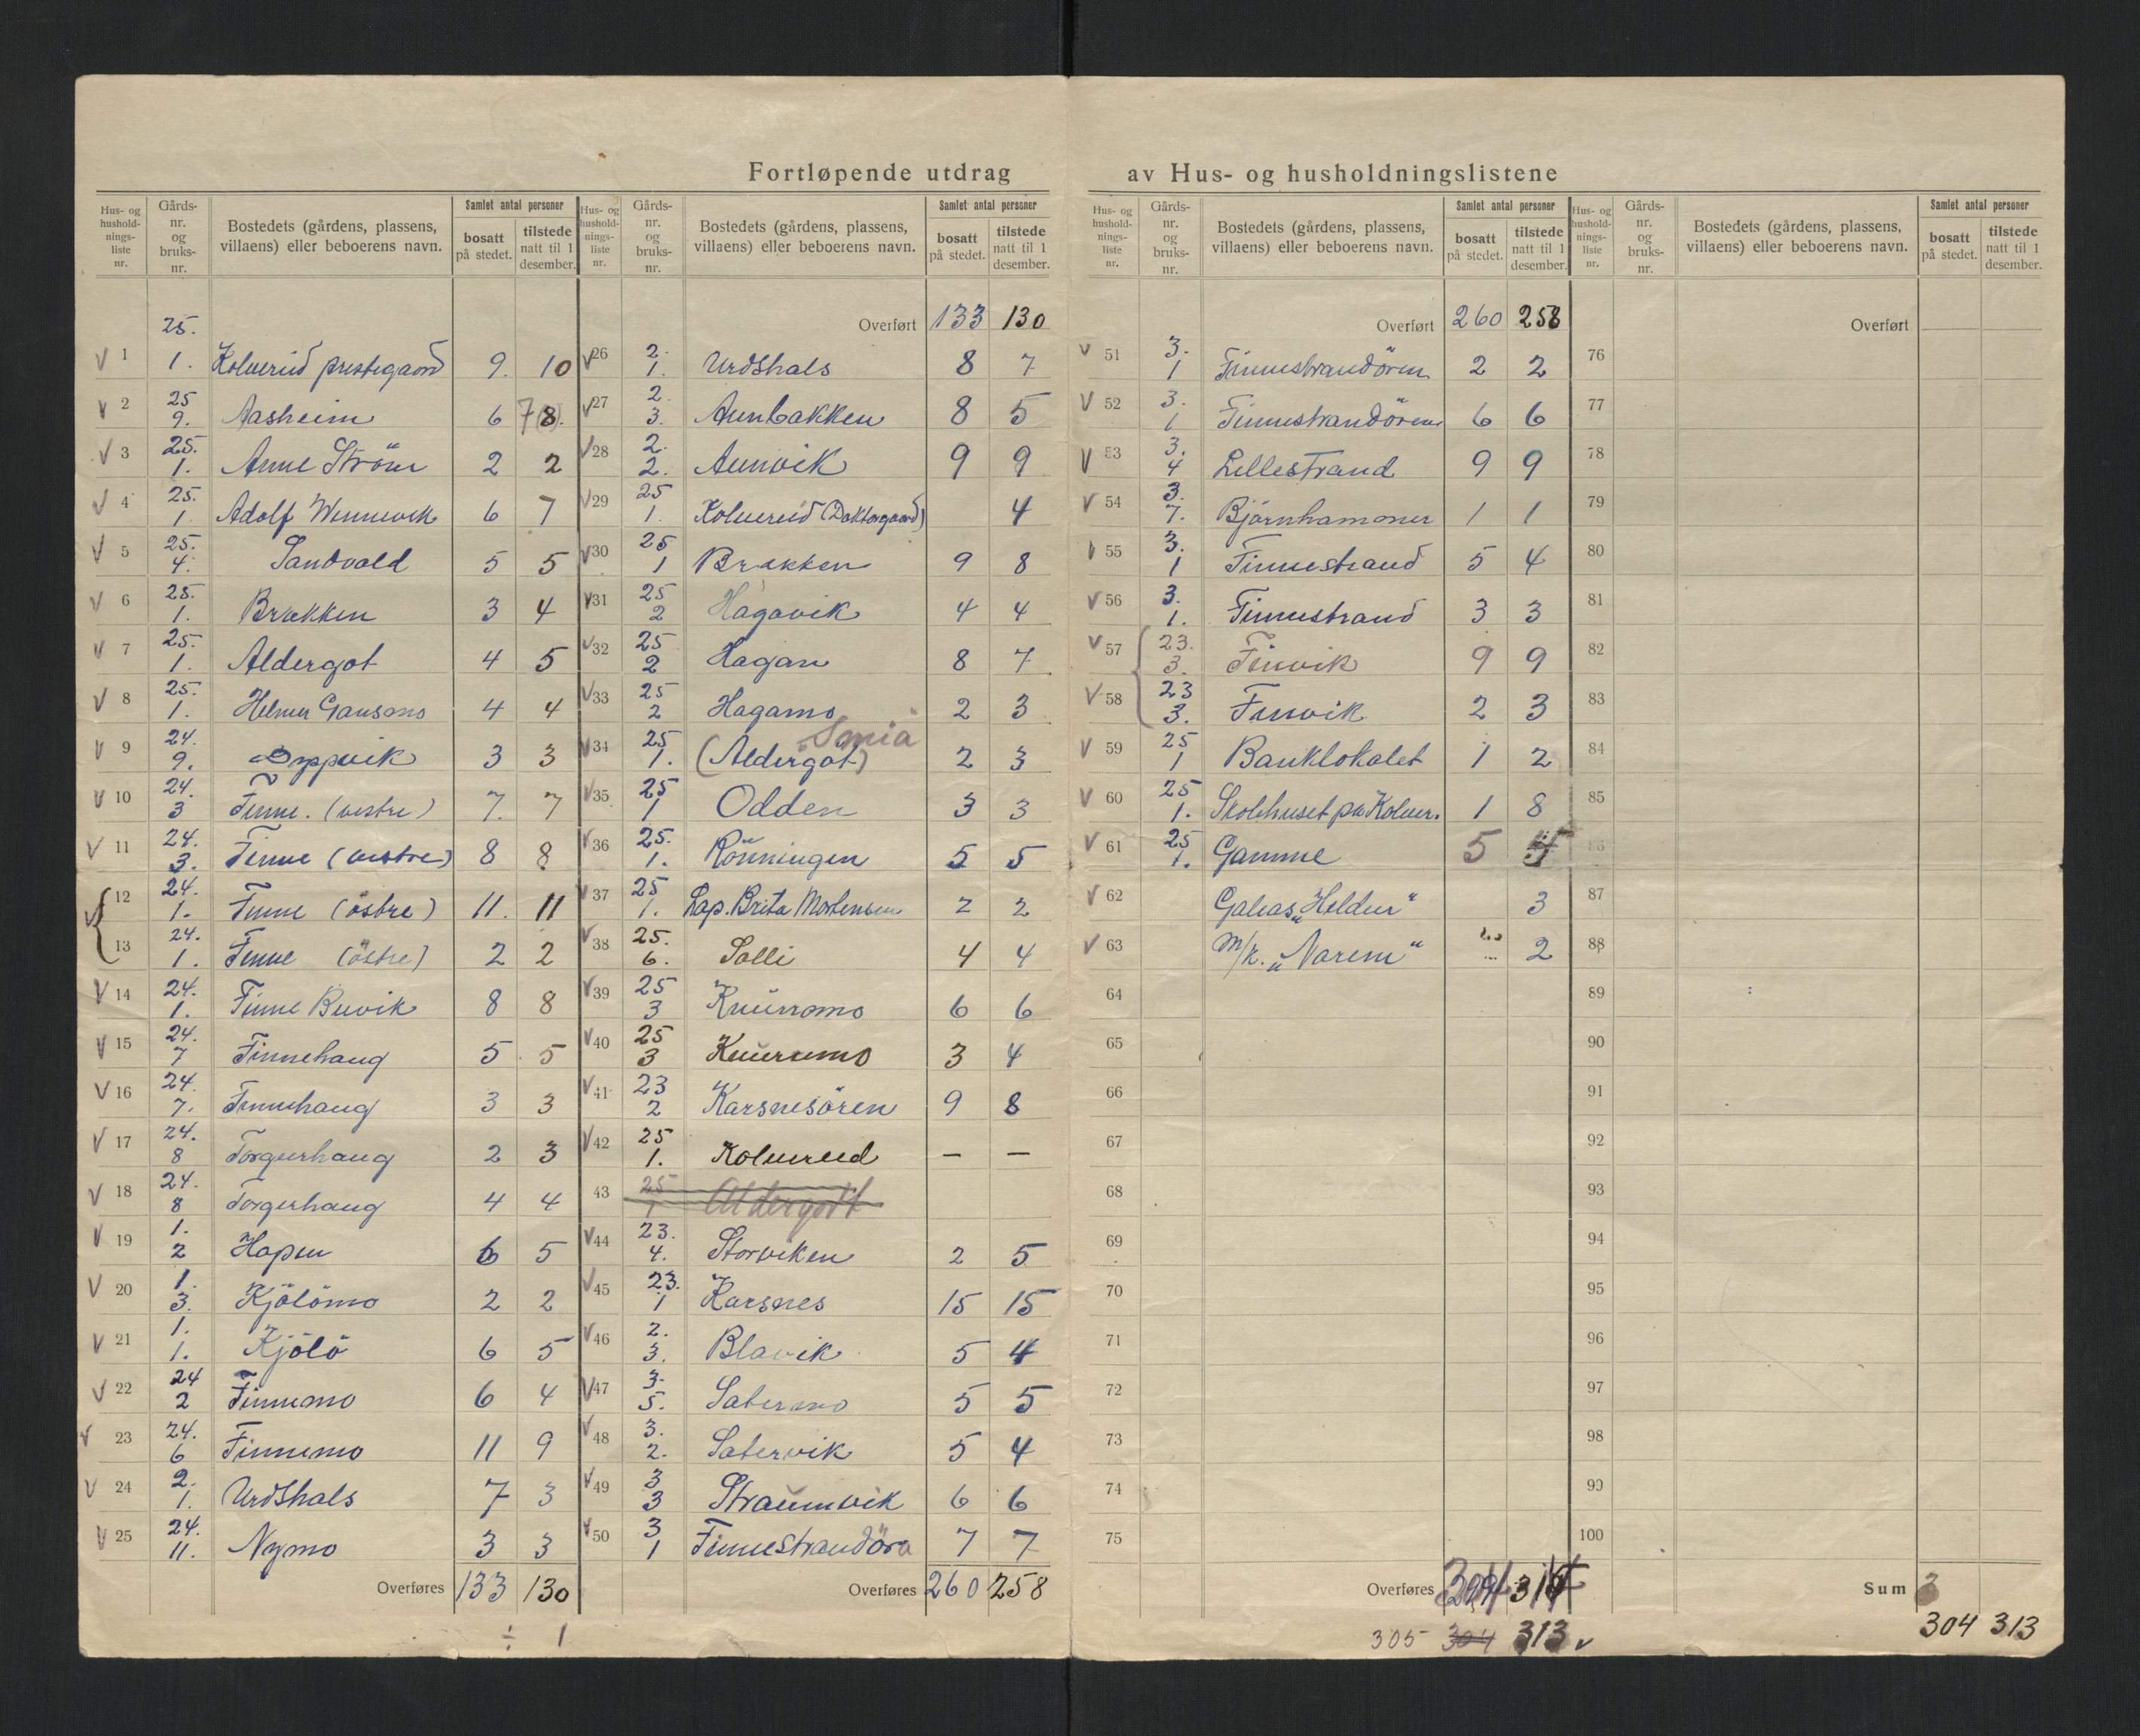 Fortløpende utdrag av Hus- og husholdningslistene
Hus- og hushold-nings-liste nr. Gårds-nr. og bruks-nr. Bostedets (gårdens, plassens, villaens) eller beboerens navn. Samlet antal personer bosatt på stedet. tilstede natt til 1 desember.
1 25. 1. Kolvereid prestegaard 9. 10
2 25 9. Aasheim 6 7 (8).
3 25. 1. Anne Ström 2 2
4 25. 1. Adolf Wennevik 6 7
5 25. 4. Sandvold 5 5
6 25. 1. Brækken 3 4
7 25. 1. Aldergot 4 5
8 25. 1. Helmer Gansmo 4 4
9 24. 9. Oppvik 3 3
10 24. 3 Finne. (vestre) 7. 7
11 24. 3. Finne (vestre) 8 8
12 24. 1. Finne (östre) 11. 11
13 24. 1. Finne (östre) 2 2
14 24. 1. Finne Buvik 8 8
15 24. 7 Finnehaug 5 5
16 24. 7. Finnehaug 3 3
17 24. 8 Torgerhaug 2 3
18 24. 8 Torgerhaug 4 4
19 1. 2 Hopen 6 5
20 1. 3. Kjölömo 2 2
21 1. 1. Kjölö 6 5
22 24 2 Finnemo 6 4
23 24. 6 Finnemo 11 9
24 2. 1. Urdshals 7 3
25 24. 11. Nymo 3 3
Overføres 133 130
÷ 1
Hus- og hushold-nings-liste nr. Gårds-nr. og bruks-nr. Bostedets (gårdens, plassens, villaens) eller beboerens navn. Samlet antal personer bosatt på stedet. tilstede natt til 1 desember.
Overført 133 130
26 2. 1. Urdshals 8 7
27 2. 3. Aunbakken 8 5
28 2. 2. Aunvik 9 9
29 25 1. Kolvereid (Doktorgaard) 4
30 25 1 Brækken 9 8
31 25 2 Hagavik 4 4
32 25 2 Hagan 8 7
33 25 2 Hagamo 2 3
34 25 1. (Aldergot) 2 3
35 25 1 Odden 3 3
36 25. 1. Rönningen 5 5
37 25 1. Lap. Brita Mortensen 2 2
38 25. 6. Solli 4 4
39 25 3 Knürromo 6 6
40 25 3 Knurrumo 3 4
41 23 2 Karsnesören 9 8
42 25 1. Kolvereid — —
43 25 1 Aldergott
44 23. 4. Storviken 2 5
45 23. 1 Karsnes 15 15
46 2. 3. Blavik 5 4
47 3. 5. Satermo 5 5
48 3. 2. Satervik 5 4
49 3 3 Straumvik 6 6
50 3 1 Finnestrandöra 7 7
Overføres 260 258
Hus- og hushold-nings-liste nr. Gårds-nr. og bruks-nr. Bostedets (gårdens, plassens, villaens) eller beboerens navn. Samlet antal personer bosatt på stedet. tilstede natt til 1 desember.
Overført 260 258
51 3. 1 Finnestrandören 2 2
52 3. 1 Finnestrandören 6 6
53 3. 4 Lillestrand 9 9
54 3. 7. Bjørnhammer 1 1
55 3. 1 Finnestrand 5 4
56 3. 1. Finnestrand 3 3
57 23. 3. Finvik 9 9
58 23 3. Finvik 2 3
59 25 1 Banklokalet 1 2
60 25 1. Skolehuset på Kolver. 1 8
61 25 1. Gamme 5
62 Galeas „Heldur“ 3
63 M/k. „Narem“ 2
64
65
66
67
68
69
70
71
72
73
74
75
Overføres
305 304 313
Hus- og hushold-nings-liste nr. Gårds-nr. og bruks-nr. Bostedets (gårdens, plassens, villaens) eller beboerens navn. Samlet antal personer bosatt på stedet. tilstede natt til 1 desember.
Overført
76
77
78
79
80
81
82
83
84
85
86
87
88
89
90
91
92
93
94
95
96
97
98
99
100
Sum
304 313